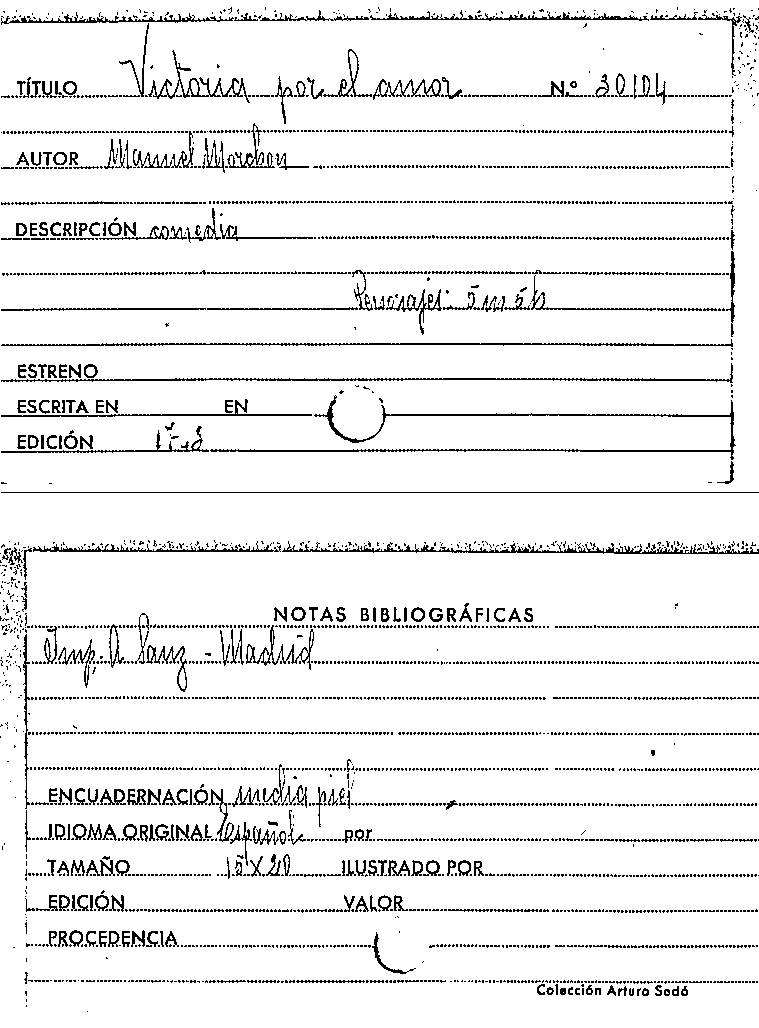 TÍTULO Victoria por el amor N.º 30104
AUTOR Manuel Morchon
DESCRIPCIÓN comedia
Personajes: 5 m 5 h
ESTRENO
ESCRITA EN EN
EDICIÓN
NOTAS BIBLIOGRÁFICAS
Imp. A Sanz - Madrid
ENCUADERNACIÓN media piel
IDIOMA ORIGINAL Español por
TAMAÑO 15 X 20 ILUSTRADO POR
EDICIÓN VALOR
PROCEDENCIA
Colección Arturo Sedó